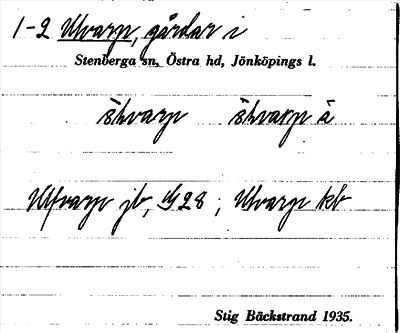 1-2 Ulvarp, gårdar i
Stenberga sn, Östra hd, Jönköpings l.
Ulvarp jb, 1928 ; Ulvarp kb
Stig Bäckstrand 1935.